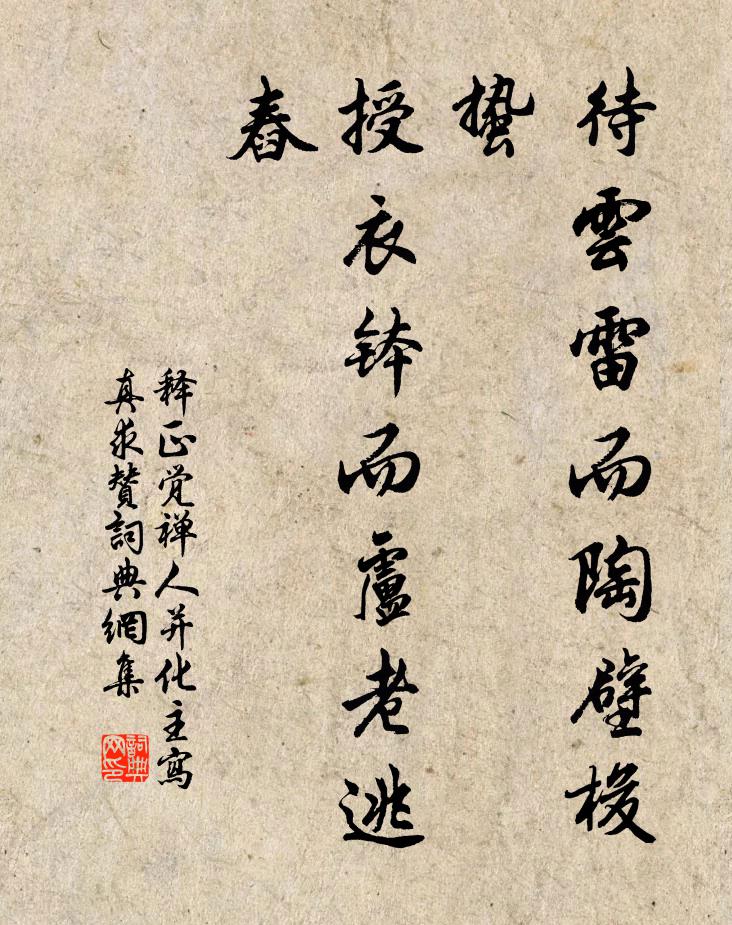 待雲雷而陶壁梭
蟄
授衣鉢而盧老逃
舂
释正觉禅人并化主寫
真求賛詞典網集
詞典
网印